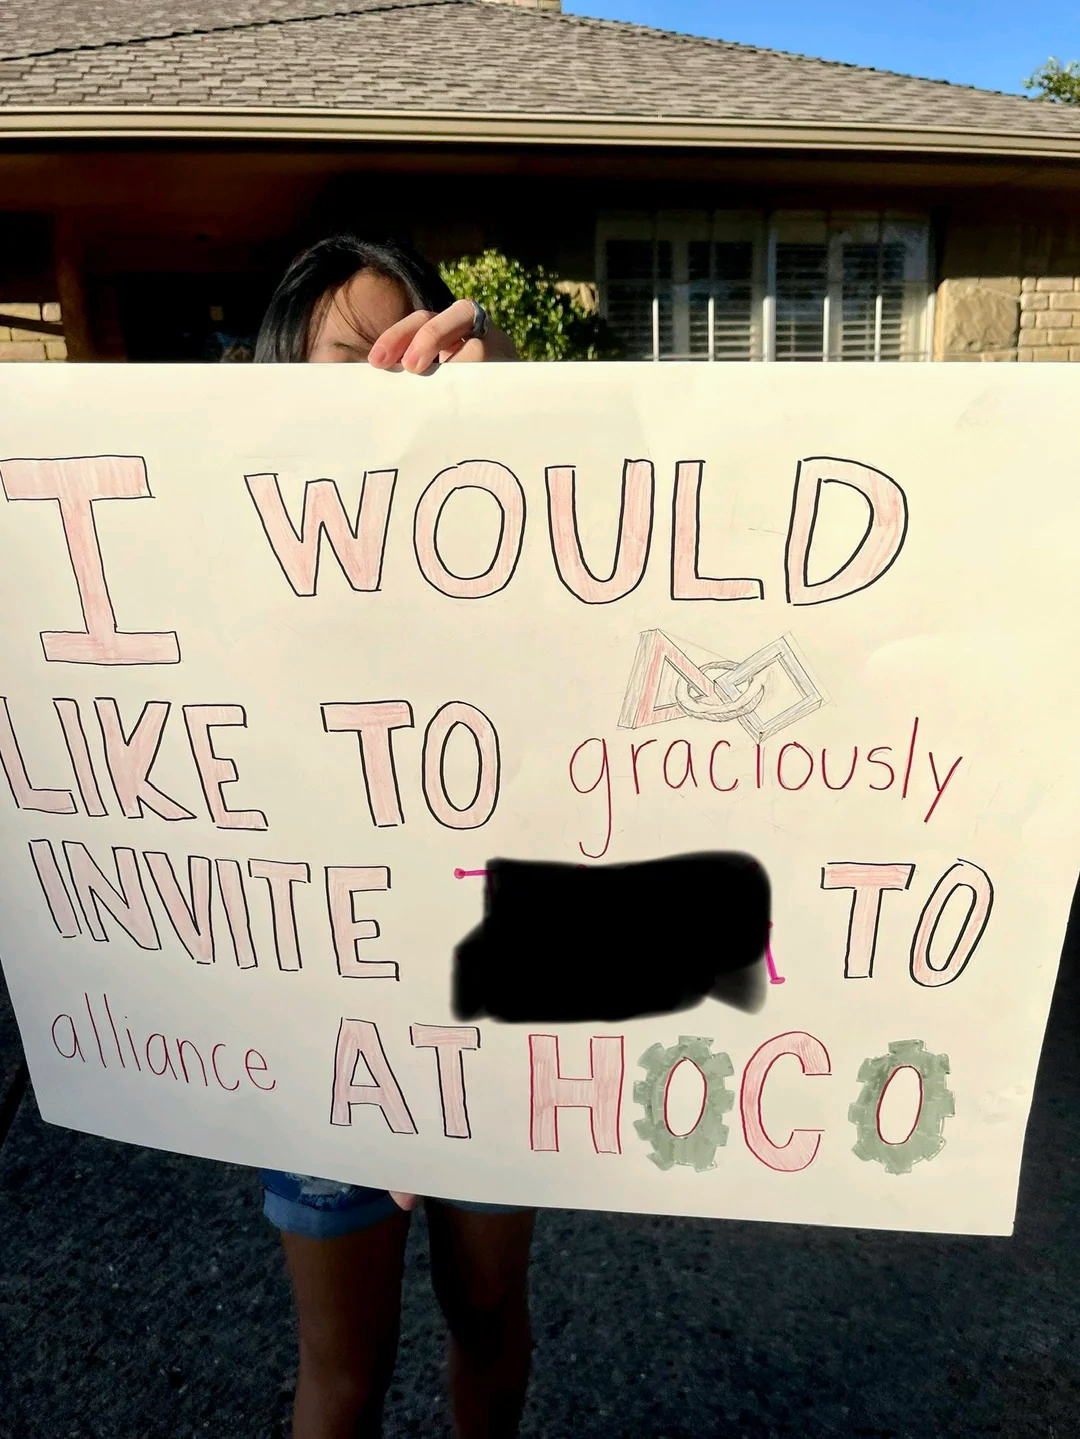 I WOULD
LIKE TO graciously
INVITE TO
alliance AT HOCO